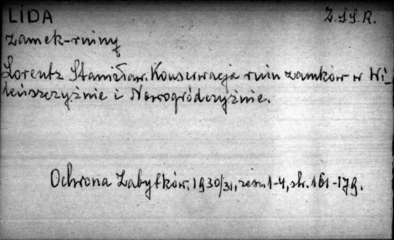 LIDA
Z.S.S.R.
zamek-ruiny
Lorentz Stanisław. Konserwacja ruin zamków w Wi-
leńszczyźnie i Nowogródczyźnie.
Ochrona Zabytków. 1930/31, zesz. 1-4, str. 161-179.